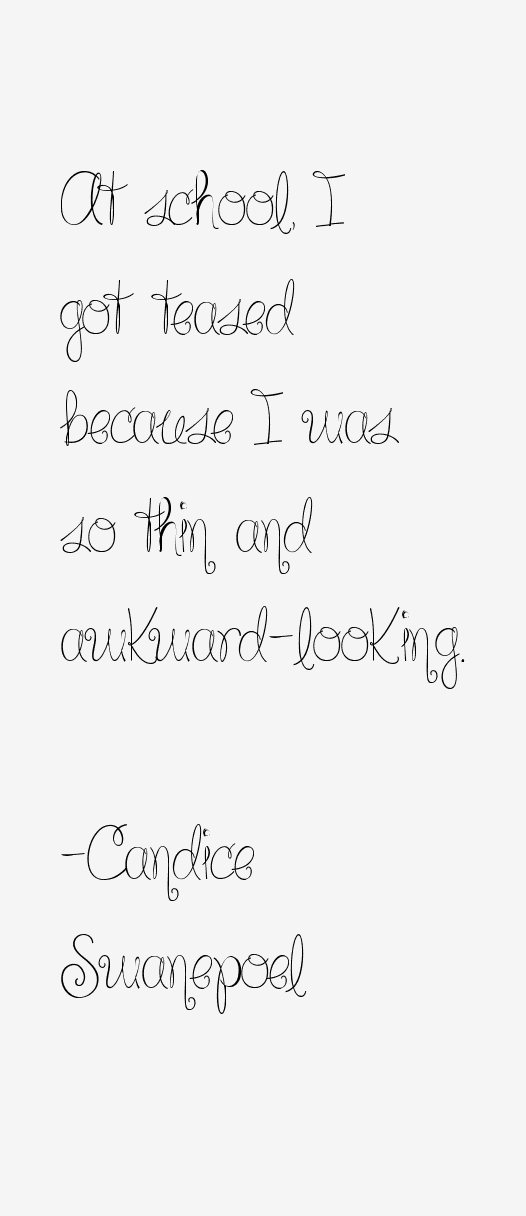 At school, I
got teased
because I was
so thin and
awkward-looking.
-Candice
Swanepoel